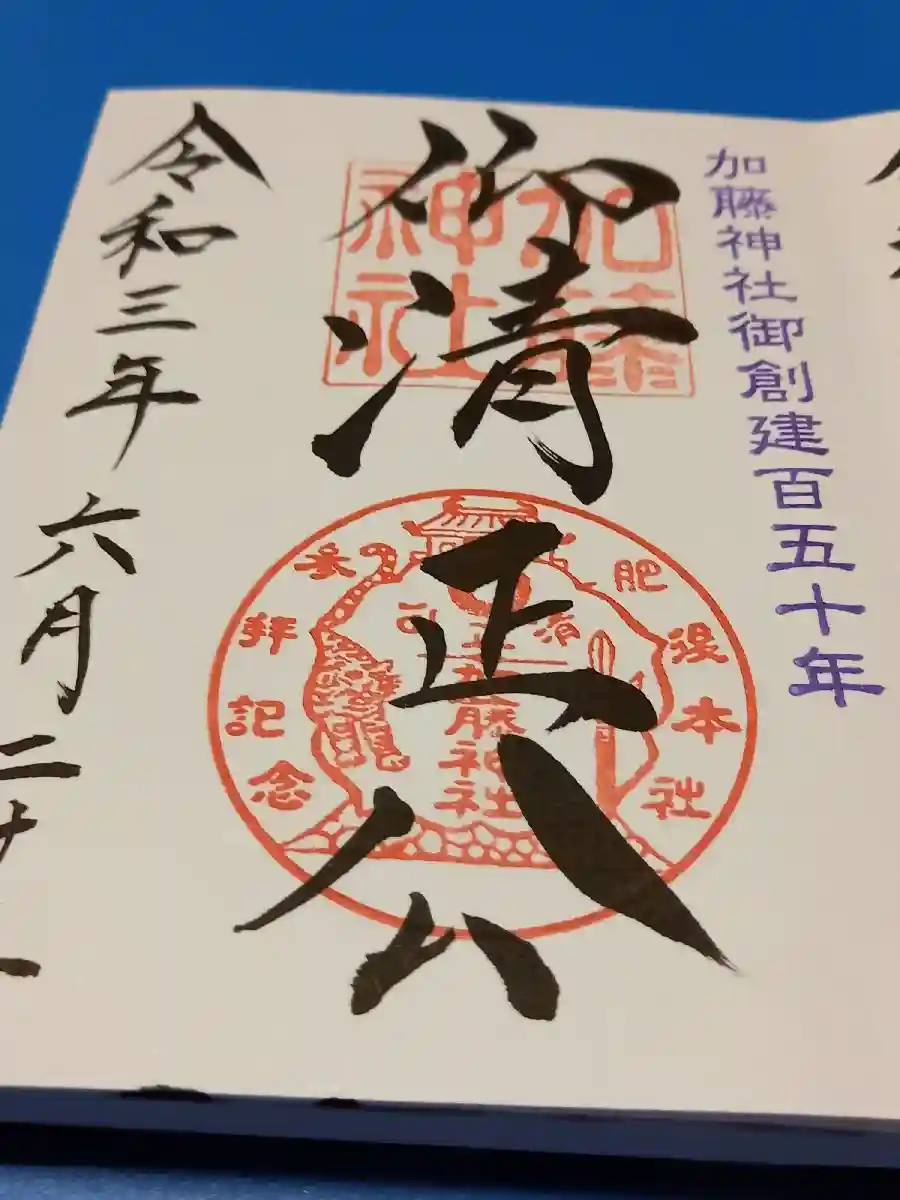 加藤神社御創建百五十年
御清正公
加藤
神社
肥後本社
参拝記念
清正公
加藤
神社
令和三年六月二十一